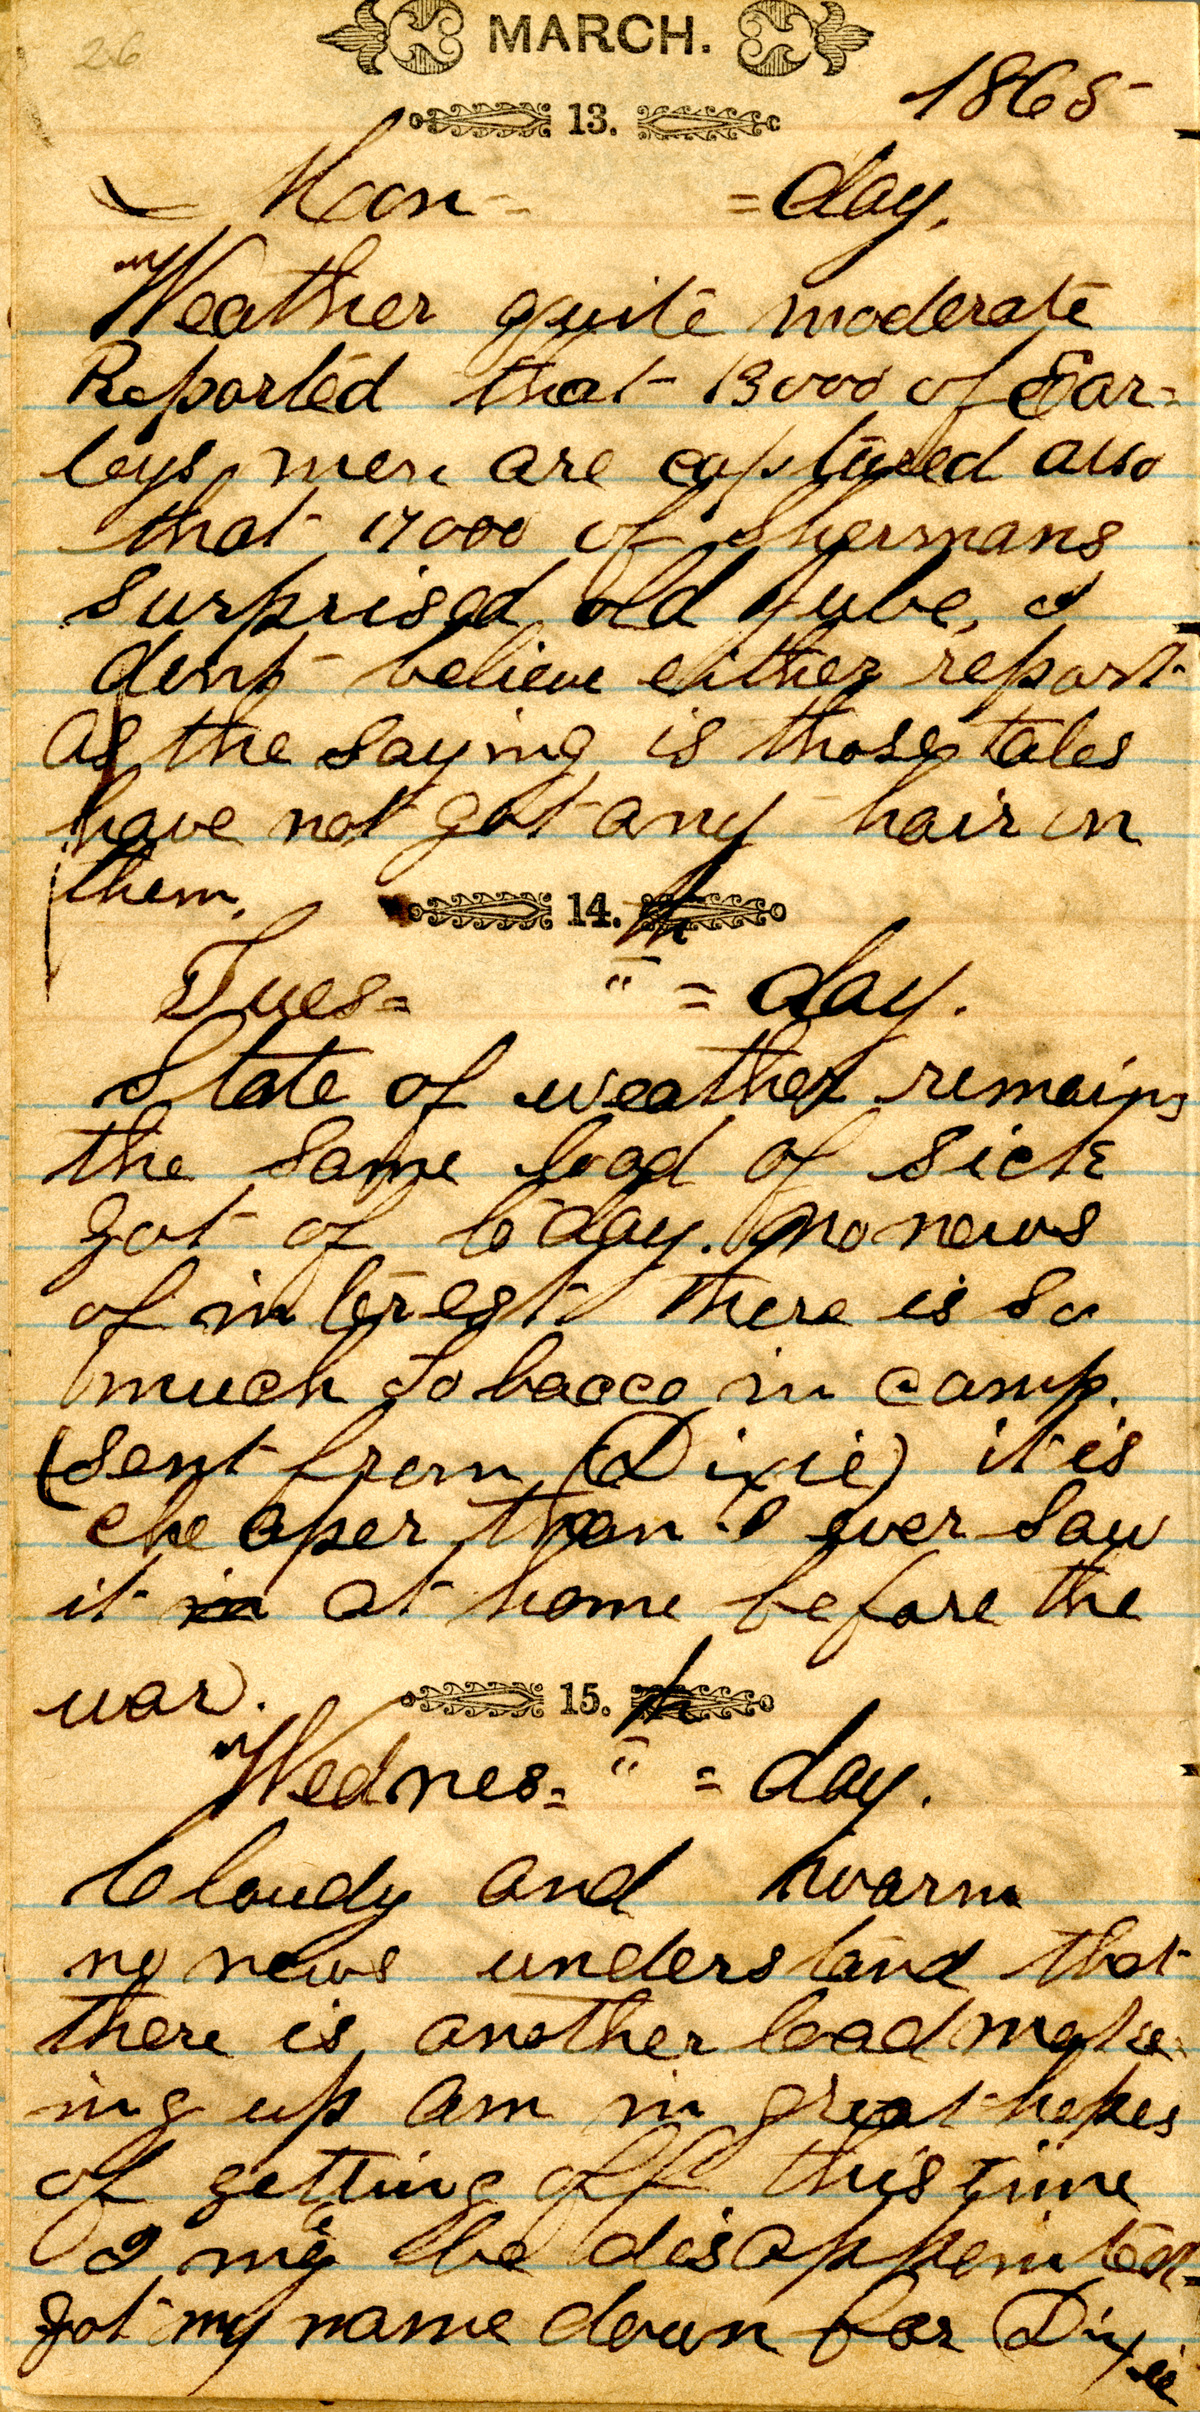 26
MARCH.
1865
13.
Mon- =day.
Weather quite moderate
Reported that 13000 of Ear=
leys men are captured also
that 17000 of Shermans
surprised old Jube, I
dont believe either report
as the saying is those tales
have not got any hair in
them.
14. th
Tues= " = day.
State of weather remains
the same load of sick
got of to day. no news
of interest there is so
much tobacco in camp.
(sent from (Dixie) it is
cheaper than I ever saw
it in at home before the
war.
15. th
Wednes= " = day.
Cloudy and warm
no news understand that
there is another load make
ing up am in great hopes
of getting off this time
I may be disappointed
got my name down for Dixie